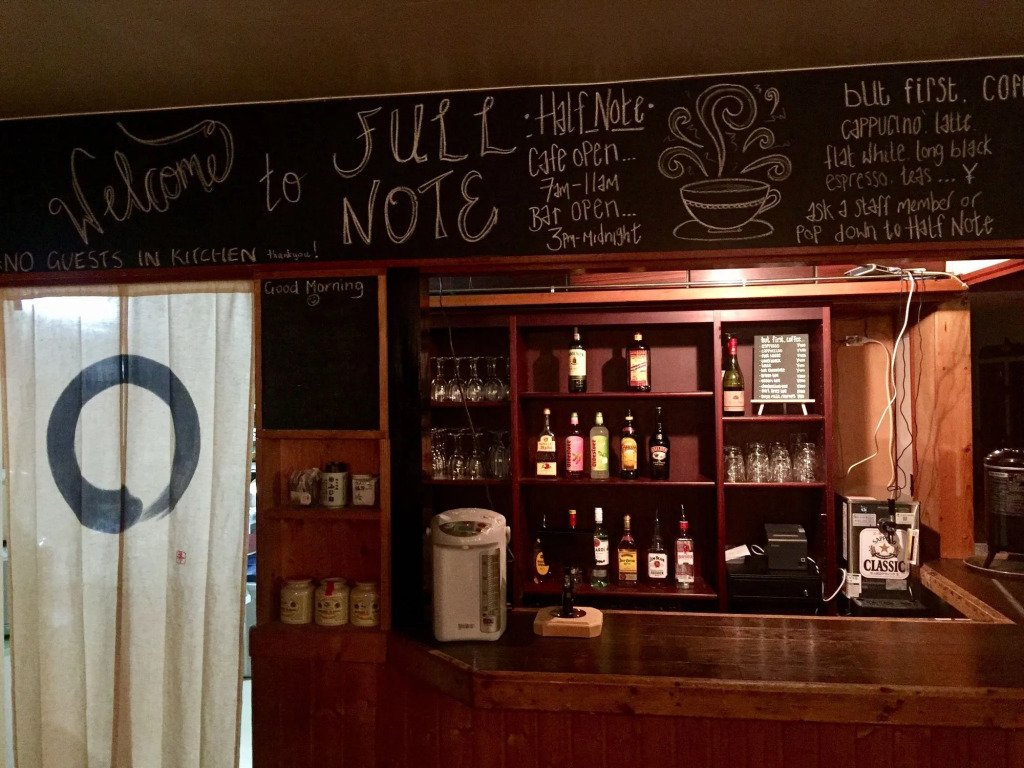 Welcome to FULL NOTE
NO GUESTS IN KITCHEN thankyou!
Half Note
Cafe open...
7am-11am
Bar open...
3pm-midnight
but first, COFF
CAPPUCINO, latte
flat white, long black
espresso, teas... ¥
ask a staff member or
pop down to Half Note
Good Morning
but first, coffee...
CLASSIC